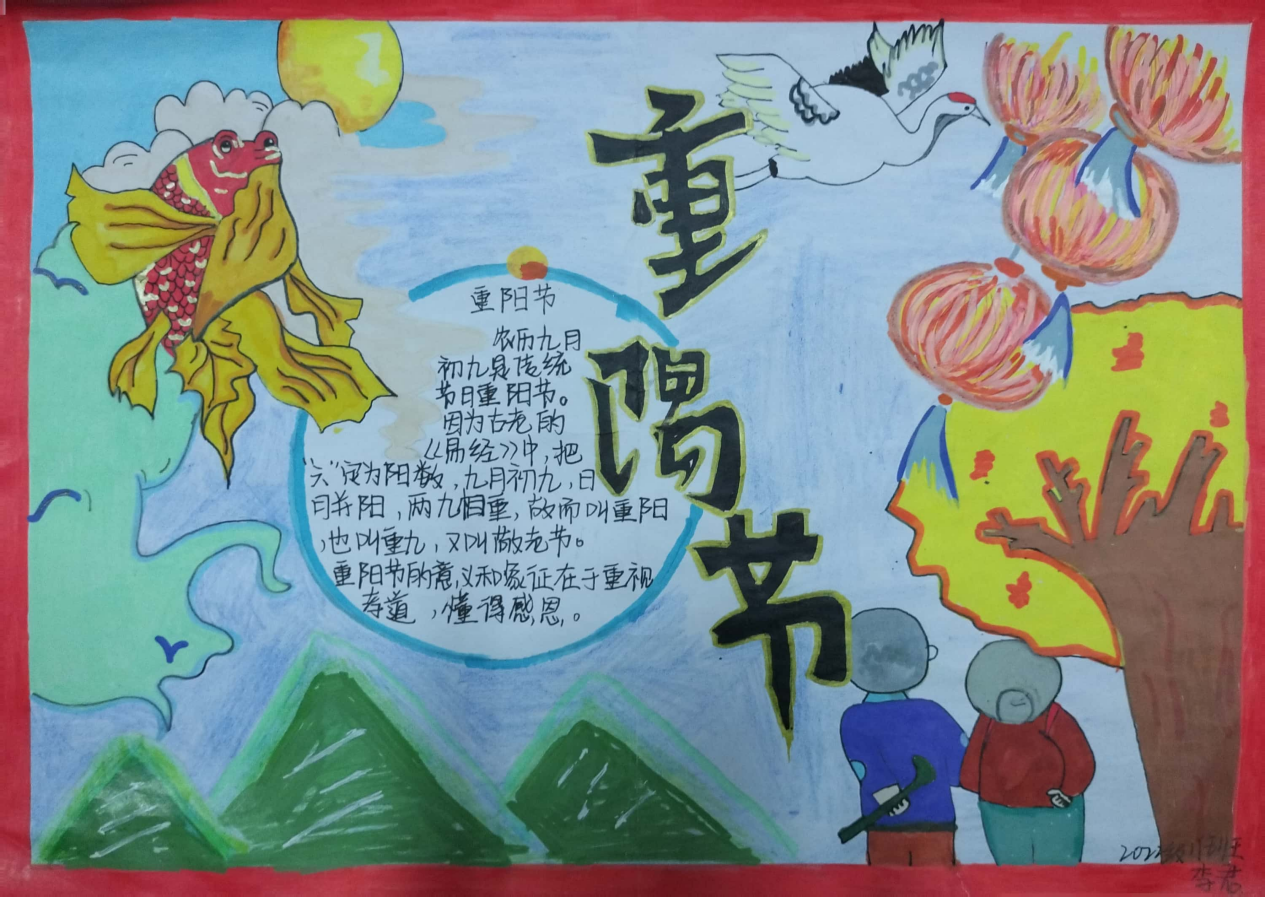 重阳节
重阳节
农历九月
初九是传统
节日重阳节。
因为古老的
《易经》中,把
"六"定为阳数,九月初九,日
月并阳,两九相重,故而叫重阳
,也叫重九,又叫敬老节。
重阳节的意义和象征在于重视
孝道,懂得感恩。
班
李君